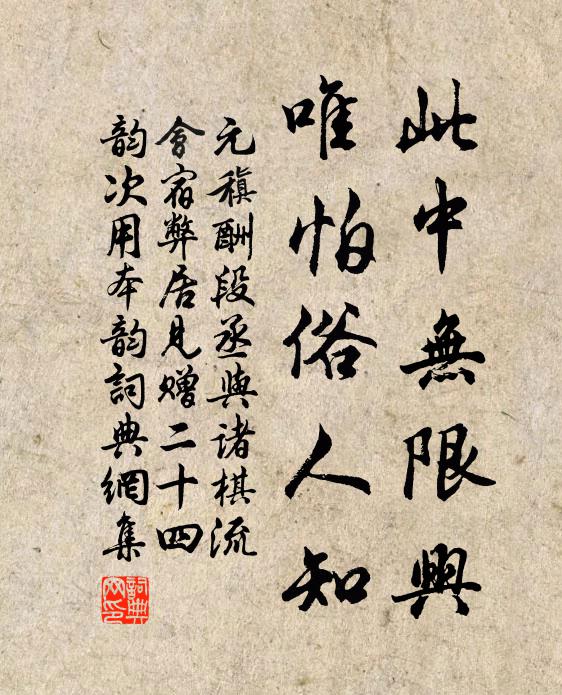 此中無限興
唯怕俗人知
元稹酬段丞與諸棋流
會宿弊居見贈二十四
韵次用本韵詞典網集
詞典
网印